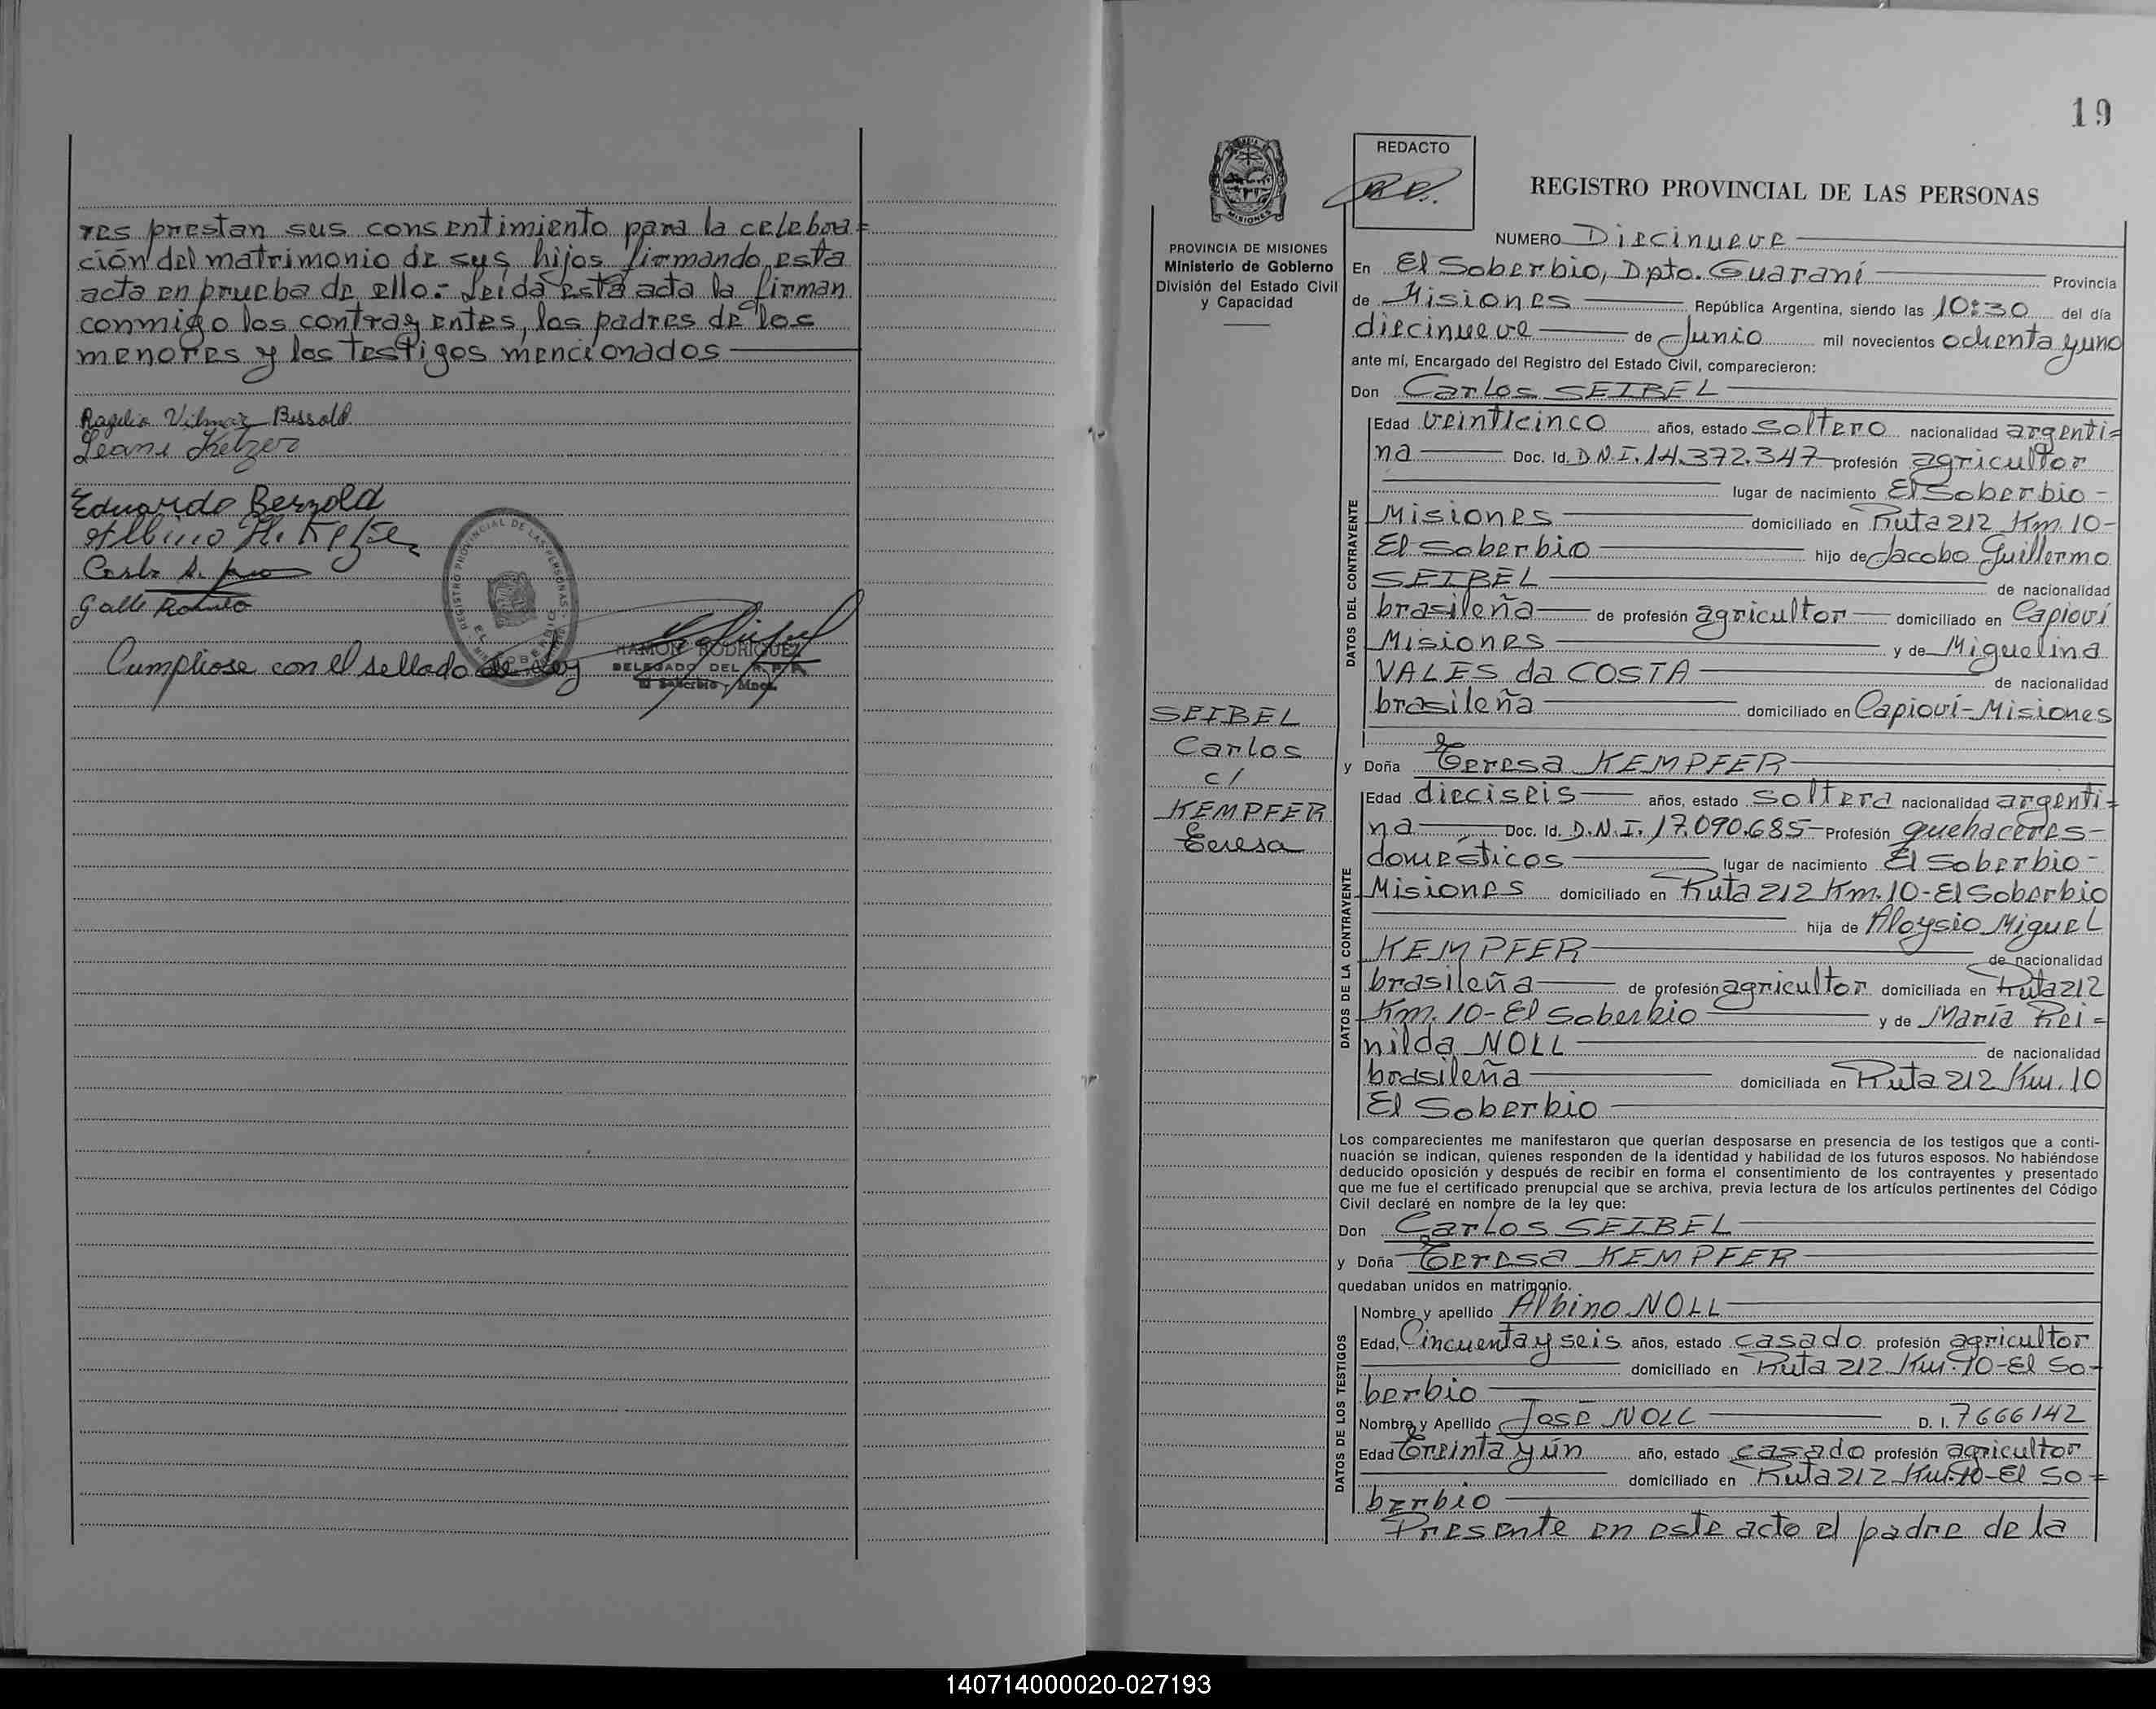 res prestan sus consentimiento para la celebra=
ción del matrimonio de sus hijos firmando esta
acta en prueba de ello.- Leida esta acta la firman
conmigo los contrayentes, los padres de los
menores y los testigos mencionados
Rogelio Vilmar Bessold
Leani Ketzer
Eduardo Berzold
Albino
Carlo A.
Galle Romulo
REGISTRO PROVINCIAL DE LAS PERSONAS
Cumpliose con el sellado de ley
RAMON RODRIGUEZ
DELEGADO DEL R. P. P.
El Soberbio - Mnes.
19
REDACTO
MISIONES
REGISTRO PROVINCIAL DE LAS PERSONAS
PROVINCIA DE MISIONES
Ministerio de Gobierno
División del Estado Civil
y Capacidad
NUMERO Diecinueve
En El Soberbio, Dpto. Guaraní Provincia
de Misiones República Argentina, siendo las 10:30 del día
diecinueve de Junio mil novecientos ochenta y uno
ante mí, Encargado del Registro del Estado Civil, comparecieron:
Don Carlos SEIBEL
DATOS DEL CONTRAYENTE
Edad veinticinco años, estado soltero nacionalidad argenti=
na Doc. Id. D.N.I. 14.372.347 profesión agricultor
lugar de nacimiento El Soberbio -
Misiones domiciliado en Ruta 212 Km. 10 -
El Soberbio hijo de Jacobo Guillermo
SEIBEL de nacionalidad
brasileña de profesión agricultor domiciliado en Capioví
Misiones y de Miguelina
VALES da COSTA de nacionalidad
brasileña domiciliado en Capioví - Misiones
SEIBEL
Carlos
c/
KEMPFER
Teresa
y Doña Teresa KEMPFER
DATOS DE LA CONTRAYENTE
Edad dieciseis años, estado soltera nacionalidad argenti=
na Doc. Id. D.N.I. 17.090.685 - Profesión quehaceres -
domésticos lugar de nacimiento El Soberbio -
Misiones domiciliado en Ruta 212 Km. 10 - El Soberbio
hija de Aloysio Miguel
KEMPFER de nacionalidad
brasileña de profesión agricultor domiciliada en Ruta 212
Km. 10 - El Soberbio y de María Rei=
nilda NOLL de nacionalidad
brasileña domiciliada en Ruta 212 Km. 10
El Soberbio
Los comparecientes me manifestaron que querían desposarse en presencia de los testigos que a conti-
nuación se indican, quienes responden de la identidad y habilidad de los futuros esposos. No habiéndose
deducido oposición y después de recibir en forma el consentimiento de los contrayentes y presentado
que me fue el certificado prenupcial que se archiva, previa lectura de los artículos pertinentes del Código
Civil declaré en nombre de la ley que:
Don Carlos SEIBEL
y Doña Teresa KEMPFER
quedaban unidos en matrimonio.
DATOS DE LOS TESTIGOS
Nombre y apellido Albino NOLL
Edad, Cincuenta y seis años, estado casado profesión agricultor
domiciliado en Ruta 212 Km. 10 - El So-
berbio
Nombre y Apellido José NOLL D. I. 7666142
Edad treinta y ún año, estado casado profesión agricultor
domiciliado en Ruta 212 Km. 10 - El So=
berbio
Presente en este acto el padre de la
140714000020-027193